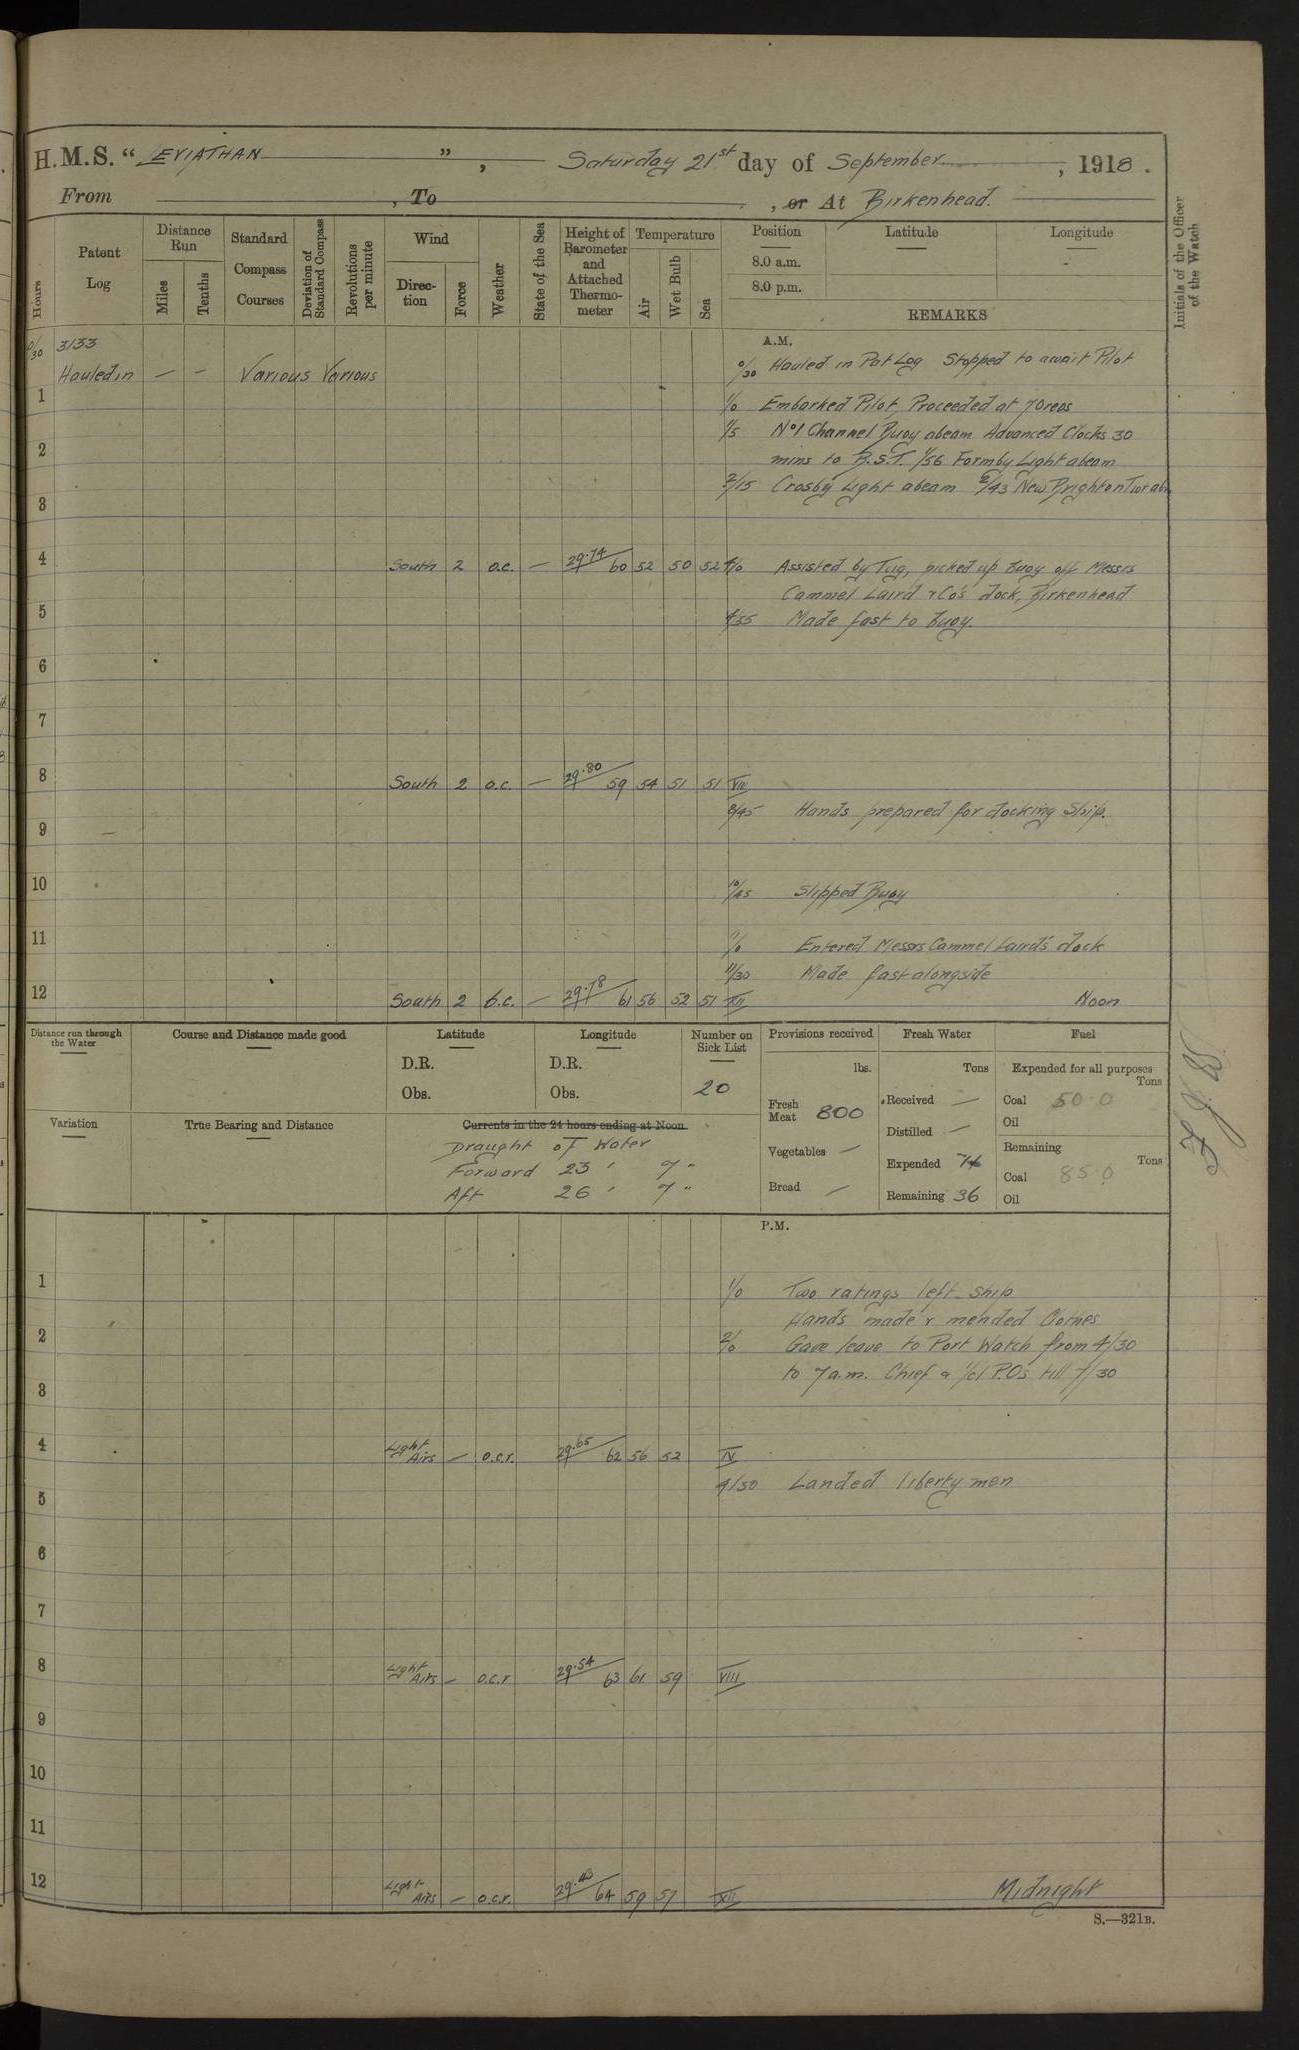 H.M.S. “ LEVIATHAN ” , Saturday 21st day of September , 1918 .
From , To , or At Birkenhead.
Hours
Patent Log
Distance Run
Miles
Tenths
Standard Compass Courses
Deviation of Standard Compass
Revolutions per minute
Wind
Direction
Force
Weather
State of the Sea
Height of Barometer and Attached Thermometer
Temperature
Air
Wet Bulb
Sea
Position
Latitude
Longitude
8.0 a.m.
8.0 p.m.
REMARKS
Initials of the Officer of the Watch
A.M.
0/30 3133
Hauled in — — Various Various
0/30 Hauled in Pat Log Stopped to await Pilot
1
1/0 Embarked Pilot, Proceeded at 70 revs
1/5 No 1 Channel Buoy abeam Advanced Clocks 30
2
mins to B.S.T. 1/56 Formby Light abeam
2/15 Crosby Light abeam 2/43 New Brighton Twr abm
3
4 South 2 o.c. — 29.74 60 52 50 52 4/0 Assisted by Tug, picked up buoy off Messrs
Cammel Laird & Co's dock, Birkenhead
5
4/55 Made fast to buoy.
6
7
8 South 2 o.c. — 29.80 59 54 51 51 VIII
8/45 Hands prepared for docking Ship.
9
10
10/45 Slipped Buoy
11
11/0 Entered Messrs Cammel Laird's dock
11/30 Made fast alongside
12 South 2 b.c. — 29.78 61 56 52 51 XII Noon
Distance run through the Water
Course and Distance made good
Latitude
D.R.
Obs.
Longitude
D.R.
Obs.
Number on Sick List
20
Provisions received
lbs.
Fresh Meat 800
Vegetables —
Bread —
Fresh Water
Tons
Received —
Distilled —
Expended 74
Remaining 36
Fuel
Expended for all purposes
Tons
Coal 50.0
Oil
Remaining
Tons
Coal 85.0
Oil
Variation
True Bearing and Distance
Currents in the 24 hours ending at Noon.
Draught of Water
Forward 23 ' 7 "
Aft 26 ' 7 "
P.M.
1
1/0 Two ratings left ship
Hands made & mended Clothes
2
2/0 Gave leave to Port Watch from 4/30
to 7 a.m. Chief & 1/cl P.Os till 7/30
3
4 Light Airs — o.c.r. 29.65 62 56 52 IV
4/30 Landed liberty men
5
6
7
8 Light Airs — o.c.r 29.54 63 61 59 VIII
9
10
11
12 Light Airs — o.c.r. 29.43 64 59 57 XII Midnight
S.—321B.